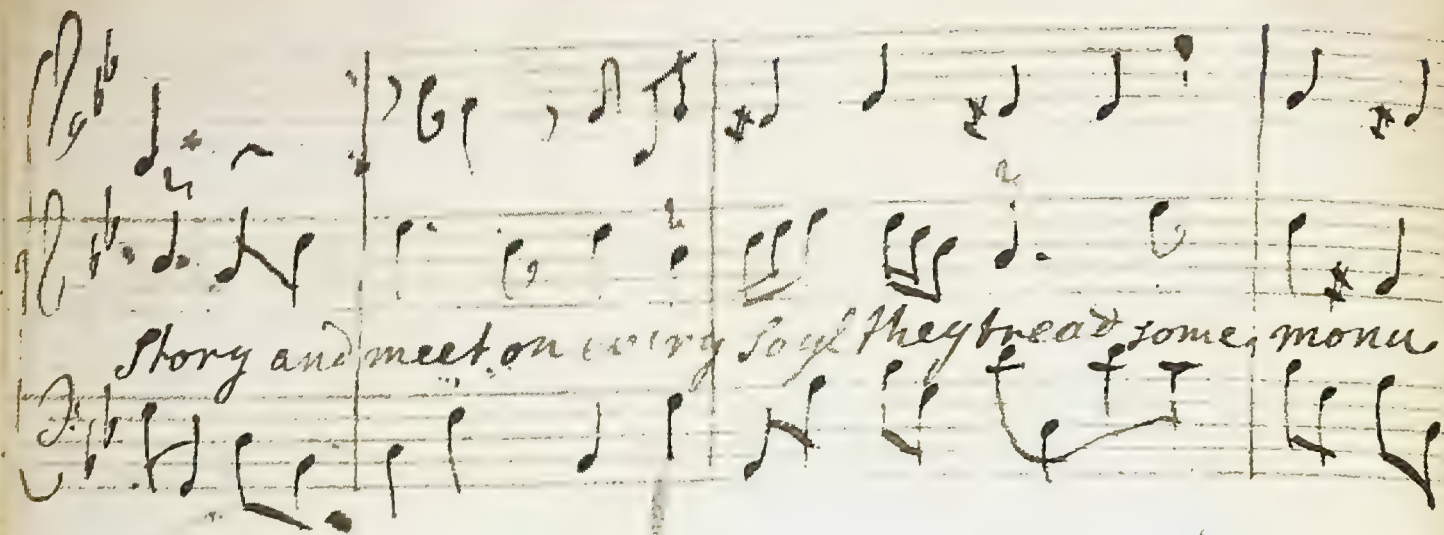 Story and meet on every Soyl they tread some monu